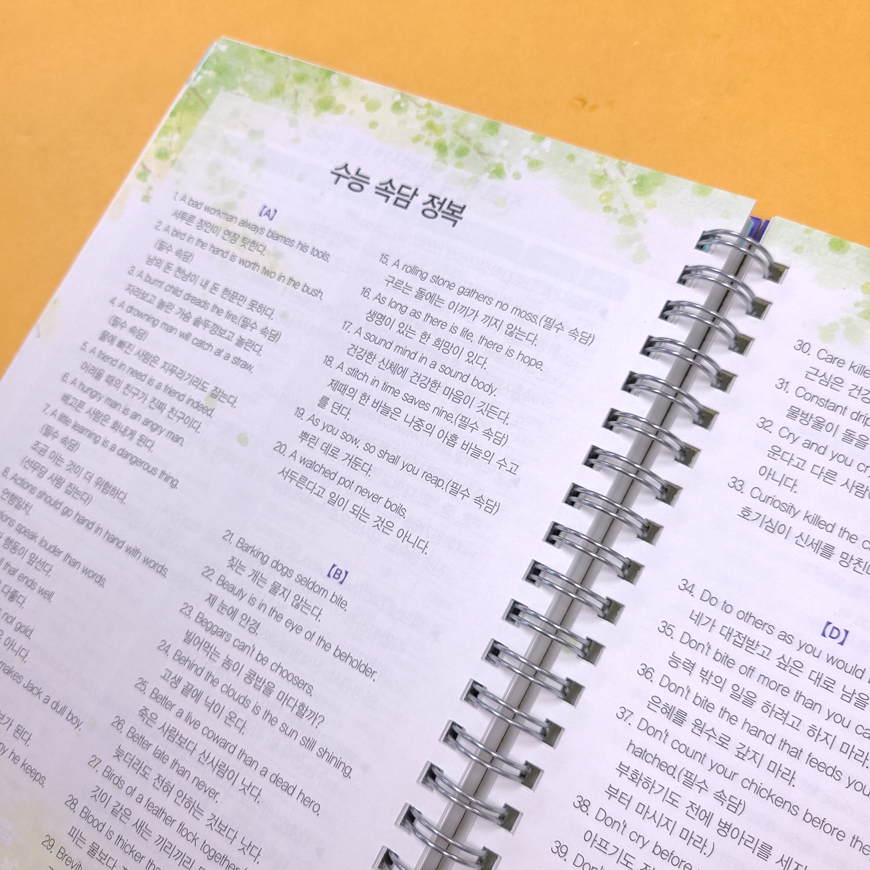 수능 속담 정복
【A】
1. A bad workman always blames his tools.
서투른 장인이 연장 탓한다.
2. A bird in the hand is worth two in the bush.
(필수 속담)
남의 돈 천냥이 내 돈 한푼만 못하다.
3. A burnt child dreads the fire.(필수 속담)
자라보고 놀란 가슴 솥뚜껑보고 놀란다.
4. A drowning man will catch at a straw.
(필수 속담)
물에 빠진 사람은 지푸라기라도 잡는다.
5. A friend in need is a friend indeed.
어려울 때의 친구가 진짜 친구이다.
6. A hungry man is an angry man.
배고픈 사람은 화내게 된다.
7. A little learning is a dangerous thing.
(필수 속담)
조금 아는 것이 더 위험하다.
(선무당 사람 잡는다)
8. Actions should go hand in hand with words.
언행일치.
speak louder than words.
행동이 앞선다.
that ends well.
not gold.
아니다.
makes Jack a dull boy.
된다.
he keeps.
15. A rolling stone gathers no moss.(필수 속담)
구르는 돌에는 이끼가 끼지 않는다.
16. As long as there is life, there is hope.
생명이 있는 한 희망이 있다.
17. A sound mind in a sound body.
건강한 신체에 건강한 마음이 깃든다.
18. A stitch in time saves nine.(필수 속담)
제때의 한 바늘은 나중의 아홉 바늘의 수고
를 던다.
19. As you sow, so shall you reap.(필수 속담)
뿌린 데로 가둔다.
20. A watched pot never boils.
서두른다고 일이 되는 것은 아니다.
【B】
21. Barking dogs seldom bite.
짖는 개는 물지 않는다.
22. Beauty is in the eye of the beholder.
제 눈에 안경.
23. Beggars can't be choosers.
빌어먹는 놈이 콩밥을 마다할까?
24. Behind the clouds is the sun still shining.
고생 끝에 낙이 온다.
25. Better a live coward than a dead hero.
죽은 사람보다 산사람이 낫다.
26. Better late than never.
늦더라도 전혀 안하는 것보다 낫다.
27. Birds of a feather flock together.
깃이 같은 새는 끼리끼리
28. Blood is thicker
피는 물보다
29.
30. Care killed
근심은
31. Constant
물방울이 돌을
32. Cry and you
운다고 다른
아니다.
33. Curiosity killed the
호기심이 신세를
【D】
34. Do to others as you would
네가 대접받고 싶은 대로 남을
35. Don't bite off more than you
능력 밖의 일을 하려고 하지 마라.
36. Don't bite the hand that feeds
은혜를 원수로 갚지 마라.
37. Don't count your chickens before
hatched.(필수 속담)
부화하기도 전에 병아리를
부터 마시지 마라.)
38. Don't cry before
아프기도
39.